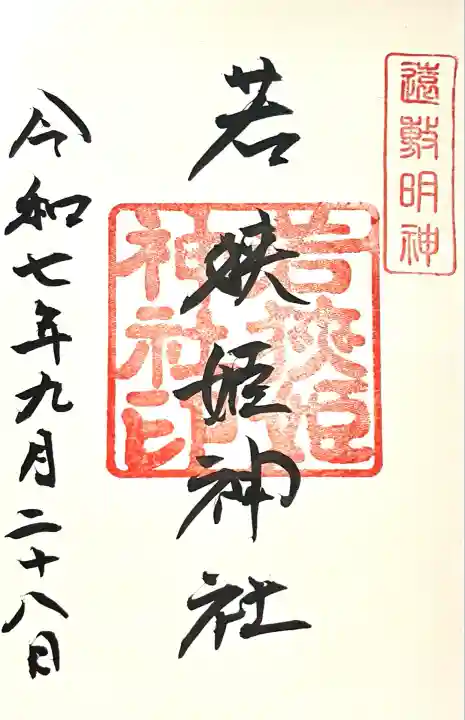 遠敷明神
若狭姫神社
若狭姫
神社印
令和七年九月二十八日